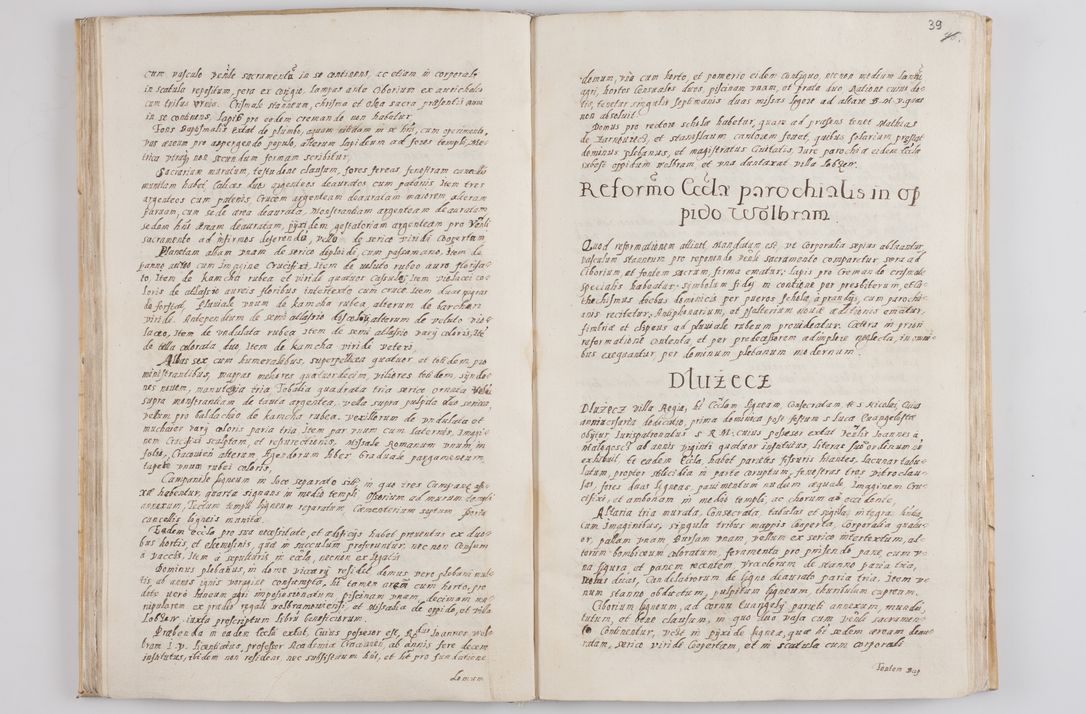 cum vasculo venle sacramentu in se continens, ac etiam in corporali
in scatula repositum, pera ex corigio. Lampas ante Ciborium ex aurichalco
cum tribus Crismale stanneum, chrisma et olea sacra, præsentis anni
in se continens, lapis pro eodem cremando non habetur.
Fons Baptismalis extat de plumbo, aquam nitidam in se hñs, cum operimento,
vas æneum pro aspergendo populo, alterum lapideum ad fores templi, Me-
trica vero non secundum formam scribitur.
Sacrarium muratum, testudine clausum, fores ferreas fenestram cancellis
munitam habet, Calices duos argenteos deauratos cum patenis Item tres
argenteos cum patenis, Crucem argenteam deauratam maiorem alteram
paruam, cum sede ærea deaurata, Monstrantiam argenteam deauratam
sedem hñt æream deauratam, pyxidem gestatoriam argenteam pro Venli
sacramento ad infirmos deferendu, vello de serico viridi Coopertam
Planetam albam vnam de serico cum passamano, Item de
panno aureo, cum Imagine Crucifixi, Item de veluto rubeo auro florisa-
to, Item de kamcha rubea et viridi quatuor casulas, Item violacei co-
loris de atlassio aureis floribus intertexto cum cruce Item duas
de forstat, Pluuiale vnum de kamcha rubea alterum de barchan
viride. Antependium de semi atlassio alterum de veluto vio-
laceo, Item de vndulata rubea Item de semi atlassio varij coloris, Ite
de tella colorata duo Item de kamcha viridi veteri,
Albas sex cum humeralibus, superpellicea quatuor et totidem pro
ministrantibus, mappas meliores quatuordecim, viliores totidem, syndo-
nes nouem, manutergia tria, Tobalia quadrata tria serico ornata
supra monstrantiam de tanta argentea, vella supra pulpita duo serica,
velum pro baldachio de kamcha rubea. vexillorum de vndulata et
muchaier varij coloris paria tria, Item par vnum cum laternis, Imagi-
nem Crucifixi sculptam, et resurectionis, Missale Romanum vnum, in
folio, Cracouien alterum Agendorum liber Graduale pargamenteum,
tapete vnum rubei coloris.
Campanile ligneum in loco separato situ, in quo tres Campanæ
habentur, quarta signans in medio templi, Ossorium ad murum templi
annexum, Tectum templi ligneum reparatum, Cæmeterium septum porta
cancellis ligneis munita.
Eadem eccla pro sua necessitate, et ædificijs habet prouentus ex duo-
bus hortis, et elemosinis, quæ in sacculum proferuntur, nec non Censum
a vaccis, Item a sepulturis in eccla, necnon ex legatis
Dominus plebanus, in domo vicarij residet domus vero plebani mul-
tis ab annis ignis voragine consumpta, ht tamen aream cum horto, pro
dote vero laneum agri impossessionatum piscinam vnam, decimam ma-
nipularem ex prædio regali wolbramowensi, et missalia de oppido, et villa
Lobzow iuxta proscriptum libri beneficiorum.
Præbenda in eadem Eccla extat, Cuius possesor est, Rdus Ioannes wol-
bram I. V. licentiatus, professor Academiæ Cracouien, ab annis fere decem
institutus, ibidem non residens, nec substitutum hñs, et ht pro fundatione
domum

39
domum, via cum horto, et pomerio eidem contiguo, nec non medium lanei
agri, hortos Censuales duos, piscinam vnam, et prata duo Ratione cuius do-
tis, tenetur singulis septimanis duas missas legere ad altare B. M. V. quas
non absoluit.
Domus pro rectore scholæ habetur, quare ad præsens tenet Mathias
de et stanislaum, cantorem fouet, quibus solarium præstat
dominus plebanus, et magistratus Ciuitatis, Iure parochiæ eidem Cclæ
subest oppidum wolbram, et vna duntaxat villa Lobzow.
Reformo Cclæ parochialis in op
pido Wolbram
Quod reformationem attinet Mandatum est, vt Corporalia sepius abluantur,
vasculum stanneum pro reponendo venli sacramento comparetur sera ad
Ciborium et fontem sacrum, firma ematur, lapis pro cremando crismate
specialis habeatur, symbolum fidei in contione per presbiterum, et Ca-
thechismus diebus dominicis per pueros scholæ, a prandijs, cum parochi-
anis recitetur, Antiphonarium, et psalterium nouæ æditionis ematur,
fimbria et clipeus ad pluuiale rubeum prouideatur. Cætera in priori
reformatione contenta, et per prædecessorem adimplere neglecta, in omni-
bus exequantur per dominum plebanum modernum.
Dlużecz
Dlużecz villa Regia, ht Ecclam ligneam, Consecratam, tt S. Nicolai, Cuius
anniuersaria dedicatio, prima dominica post festum s. Lucæ Euangelistæ
obijtur Iurispatronatus S. R. M. cuius possesor extat Venlis Ioannes a
Małogoscz ab annis viginti quatuor institutus, literas suor ordinum non
exhibuit, Et eadem Eccla, habet parietes fissuris hiantes, lacunar tabu-
latum, propter stilicidia in parte coruptum, fenestras tres vitro clau-
sas, fores duas ligneas, pauimentum nudum æquale, Imaginem Cruc-
cifixi, et ambonam in medio templi, ac chorum ab occidente,
Altaria tria murata, Consecrata, tabulas et sigilla, integra
tam Imaginibus, singula tribus mappis cooperta, Corporalia quatu-
or, pallam vnam, Bursam vnam, vellum ex serico intertextum, al-
terum bombiceum coloratum, feramenta pro pinsendo pane, cum vi-
na figura et panem recentem, vrceolorum de stanno paria tria,
duas, Candelabrorum de ligno deaurato paria tria, Item vn
num stanno obductum, pulpitum ligneum, thuribulum cupreum.
Ciborium ligneum, ad cornu Euangelij parieti annexum, mundu,
tutum, et bene clausum, in quo duo vasa cum venli sacramen-
to Continentur, in pyxide lignea, quæ ht sedem æream deau-
ratam, serico viridi coopertam, et in scutula cum corporali
Fontem Bap